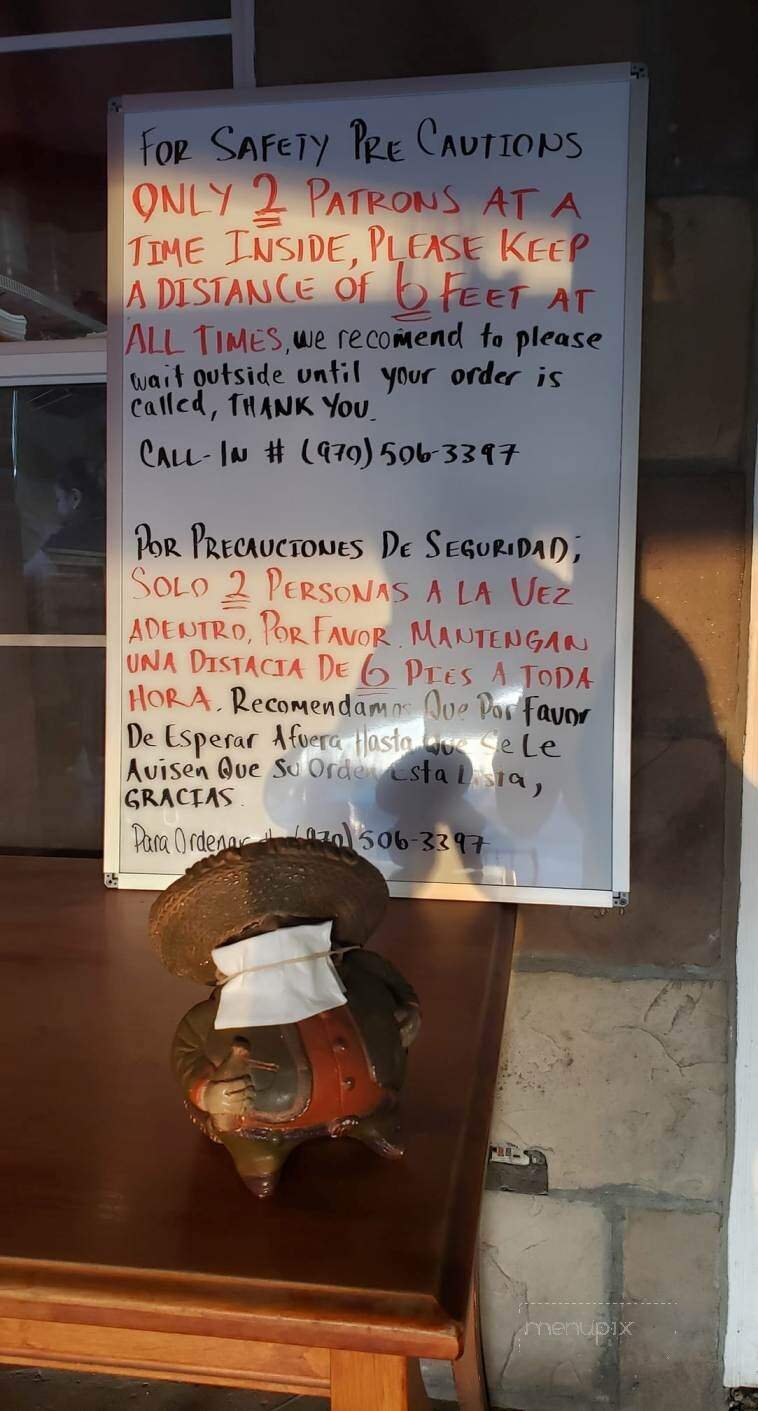 FOR SAFETY PRE CAUTIONS
ONLY 2 PATRONS AT A
TIME INSIDE, PLEASE KEEP
A DISTANCE OF 6 FEET AT
ALL TIMES, we recomend to please
wait outside until your order is
called, THANK YOU.
CALL-IN # (970) 506-3397
POR PRECAUCIONES DE SEGURIDAD;
SOLO 2 PERSONAS A LA VEZ
ADENTRO, POR FAVOR. MANTENGAN
UNA DISTACIA DE 6 PIES A TODA
HORA. Recomendamos Que Por Favor
De Esperar Afuera Hasta Que Se Le
Avisen Que Su Orden Esta Lista,
GRACIAS.
Para Ordenar (970) 506-3397
menupix